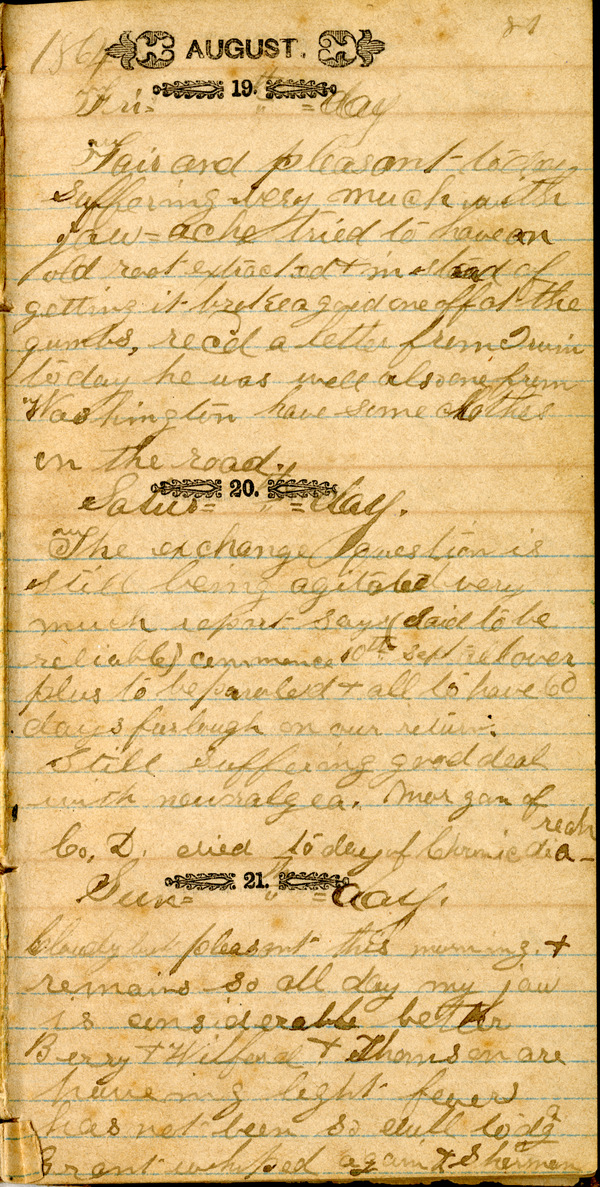 1864 AUGUST. 81
Fri= 19.th =day
Fair and pleasant today
suffering very much with
jaw=ache tried to have an
old root extracted & instead of
getting it broke a good one off at the
gumbs, rec'd a letter from Irwin
today he was well also one from
Washington have some clothes
on the road.
Satur= 20.th =day.
The exchange question is
still being agitated very
much report says (said to be
reliable) commence 10th Sept over
plus to be paroled & all to have 60
days furlough on our return.
Still suffering good deal
with neuralgea. Morgan of
Co. D. died today of Chronic dia-
reah
Sun= 21.th =day.
Cloudy but pleasant this morning. &
remains so all day my jaw
is considerable better
Berry & Wilford & Thomson are
having light fever
has not been so well today
Grant whiped again & Sherman